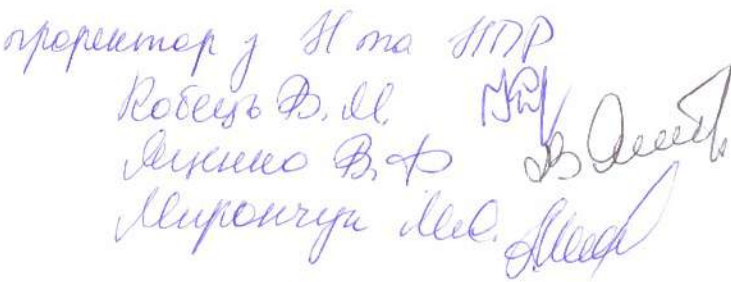 проректор з Н та НПР
Кобець В.М.
В.Ф
Мирончук М.С.